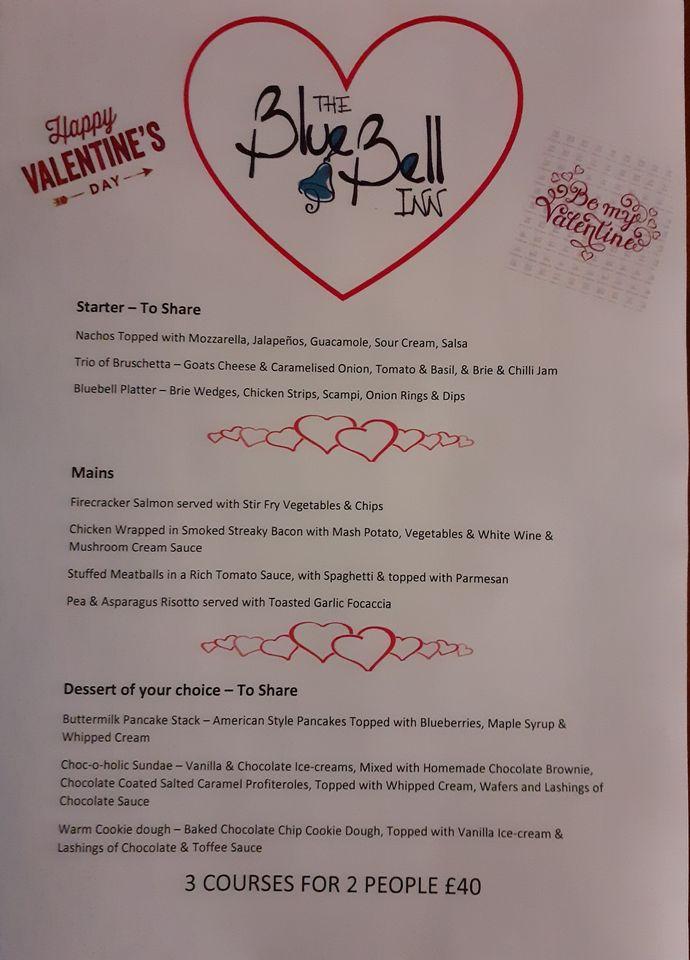 Happy
VALENTINE'S
DAY
THE
Blue Bell
INN
Be my
Valentine
Starter – To Share
Nachos Topped with Mozzarella, Jalapeños, Guacamole, Sour Cream, Salsa
Trio of Bruschetta – Goats Cheese & Caramelised Onion, Tomato & Basil, & Brie & Chilli Jam
Bluebell Platter – Brie Wedges, Chicken Strips, Scampi, Onion Rings & Dips
Mains
Firecracker Salmon served with Stir Fry Vegetables & Chips
Chicken Wrapped in Smoked Streaky Bacon with Mash Potato, Vegetables & White Wine &
Mushroom Cream Sauce
Stuffed Meatballs in a Rich Tomato Sauce, with Spaghetti & topped with Parmesan
Pea & Asparagus Risotto served with Toasted Garlic Focaccia
Dessert of your choice – To Share
Buttermilk Pancake Stack – American Style Pancakes Topped with Blueberries, Maple Syrup &
Whipped Cream
Choc-o-holic Sundae – Vanilla & Chocolate Ice-creams, Mixed with Homemade Chocolate Brownie,
Chocolate Coated Salted Caramel Profiteroles, Topped with Whipped Cream, Wafers and Lashings of
Chocolate Sauce
Warm Cookie dough – Baked Chocolate Chip Cookie Dough, Topped with Vanilla Ice-cream &
Lashings of Chocolate & Toffee Sauce
3 COURSES FOR 2 PEOPLE £40